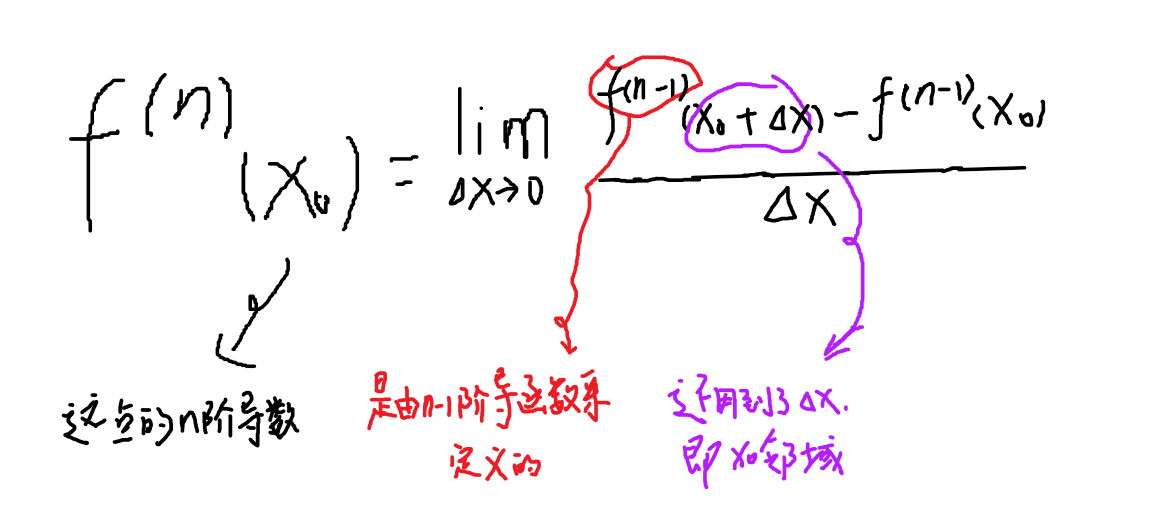 f^(n)(x₀) = lim Δx→0 (f^(n-1)(x₀+Δx) - f^(n-1)(x₀)) / Δx
这点的n阶导数
是由n-1阶导函数来
定义的
还用到了Δx.
即x0邻域